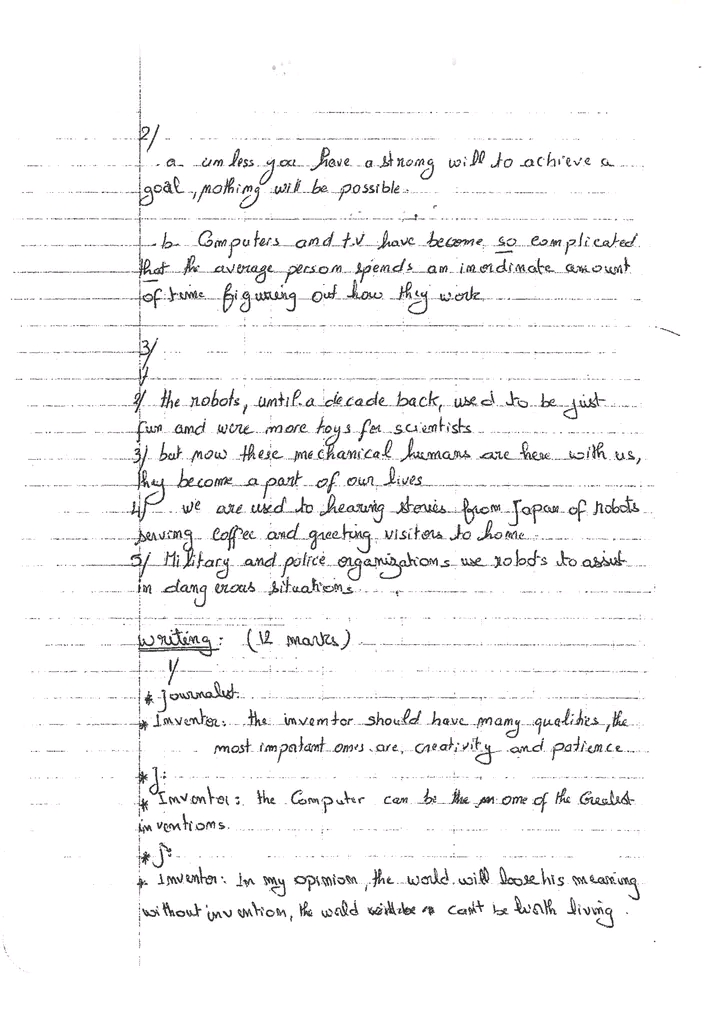 2/
- a - unless you have a strong will to achieve a
goal, nothing will be possible.
- b - Computers and t.v have become so complicated
that the average person spends an inordinate amount
of time figuring out how they work
3/
1/
2/ the robots, until a decade back, used to be just
fun and were more toys for scientists
3/ but now these mechanical humans are here with us,
they become a part of our lives
4/ we are used to hearing stories from Japan of robots
serving coffee and greeting visitors to home.
5/ Military and police organizations use robots to assist
in dangerous situations
Writing: (12 marks)
1/
* Journalist
* Inventor: the inventor should have many qualities, the
most important ones are, creativity and patience
* J:
* Inventor: the Computer can be the one of the Greatest
inventions.
* J:
* Inventor: In my opinion, the world will loose his meaning
without invention, the world can't be worth living.